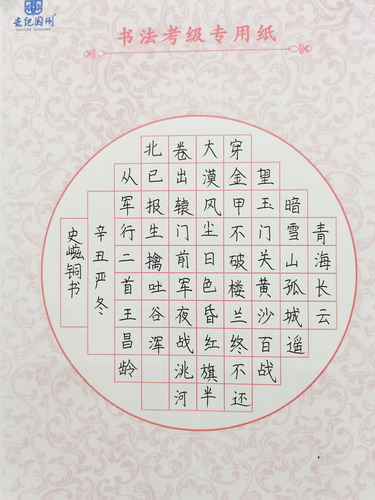 书法考级专用纸
青海长云
暗雪山孤城遥
望玉门关黄沙百战
穿金甲不破楼兰终不还
大漠风尘日色昏红旗半
卷出辕门前军夜战洮河
北已报生擒吐谷浑
从军行二首王昌龄
辛丑严冬
史铜书